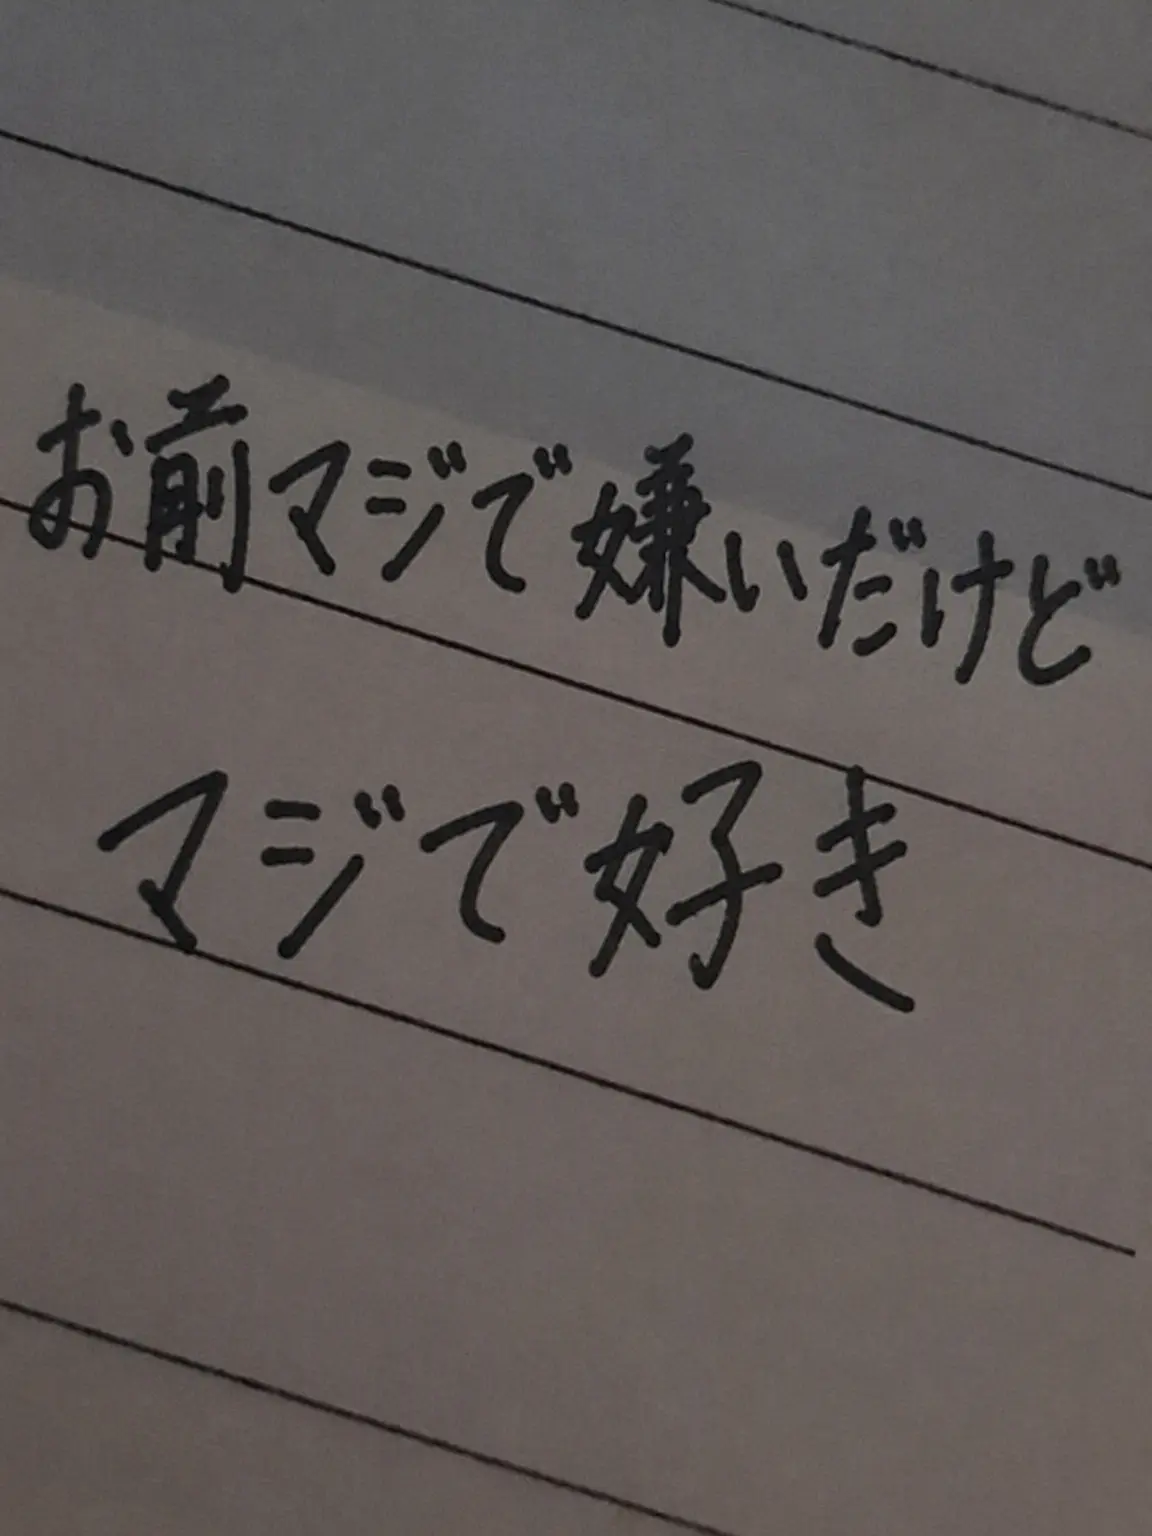 お前マジで嫌いだけど
マジで好き